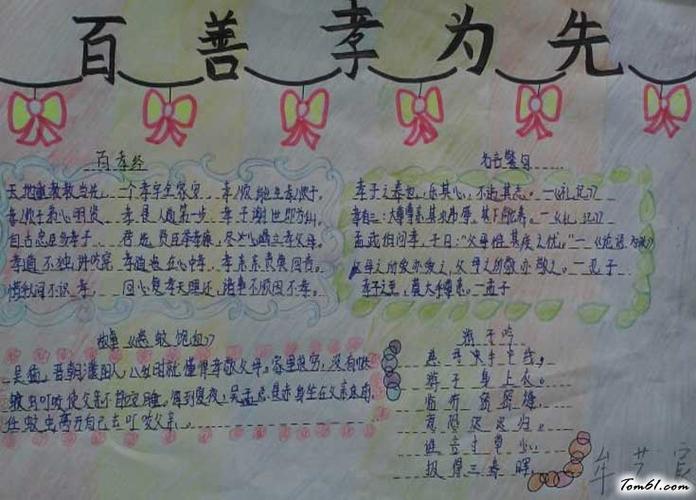 百善孝为先
百孝经
天地重孝孝当先，一个孝字全家安，孝顺能生孝顺子，
孝顺子弟必明贤，孝是人道第一步，孝子谢世即为仙，
自古忠臣多孝子，君选贤臣举孝廉，尽心竭力孝父母，
孝道不独讲吃穿，孝道贵在心中孝，孝亲亲责莫回言，
惜乎人间不识孝，回心复孝天理还，诸事不顺因不孝，
名言警句
孝子之养也，乐其心，不违其志。—《礼记》
孝有三：大尊尊亲，其次弗辱，其下能养。—《礼记》
孟武伯问孝，子曰：“父母惟其疾之忧。”—《论语·为政》
父母之所爱亦爱之，父母之所敬亦敬之。—孔子
孝子之至，莫大乎尊亲。—孟子
故事《恣蚊饱血》
吴猛，晋朝濮阳人，八岁时就懂得孝敬父母。家里贫穷，没有蚊帐
蚊虫叮咬使父亲不能安睡。每到夏夜，吴猛总是赤身坐在父亲床前，
蚊虫离开自己去叮咬父亲。
游子吟
慈母手中线，
游子身上衣。
临行密密缝，
意恐迟迟归。
谁言寸草心，
报得三春晖。
Tom61.com